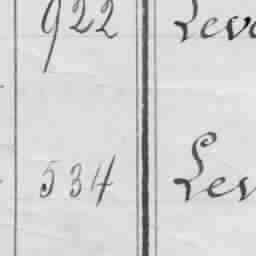 922 Leve
534 Lev